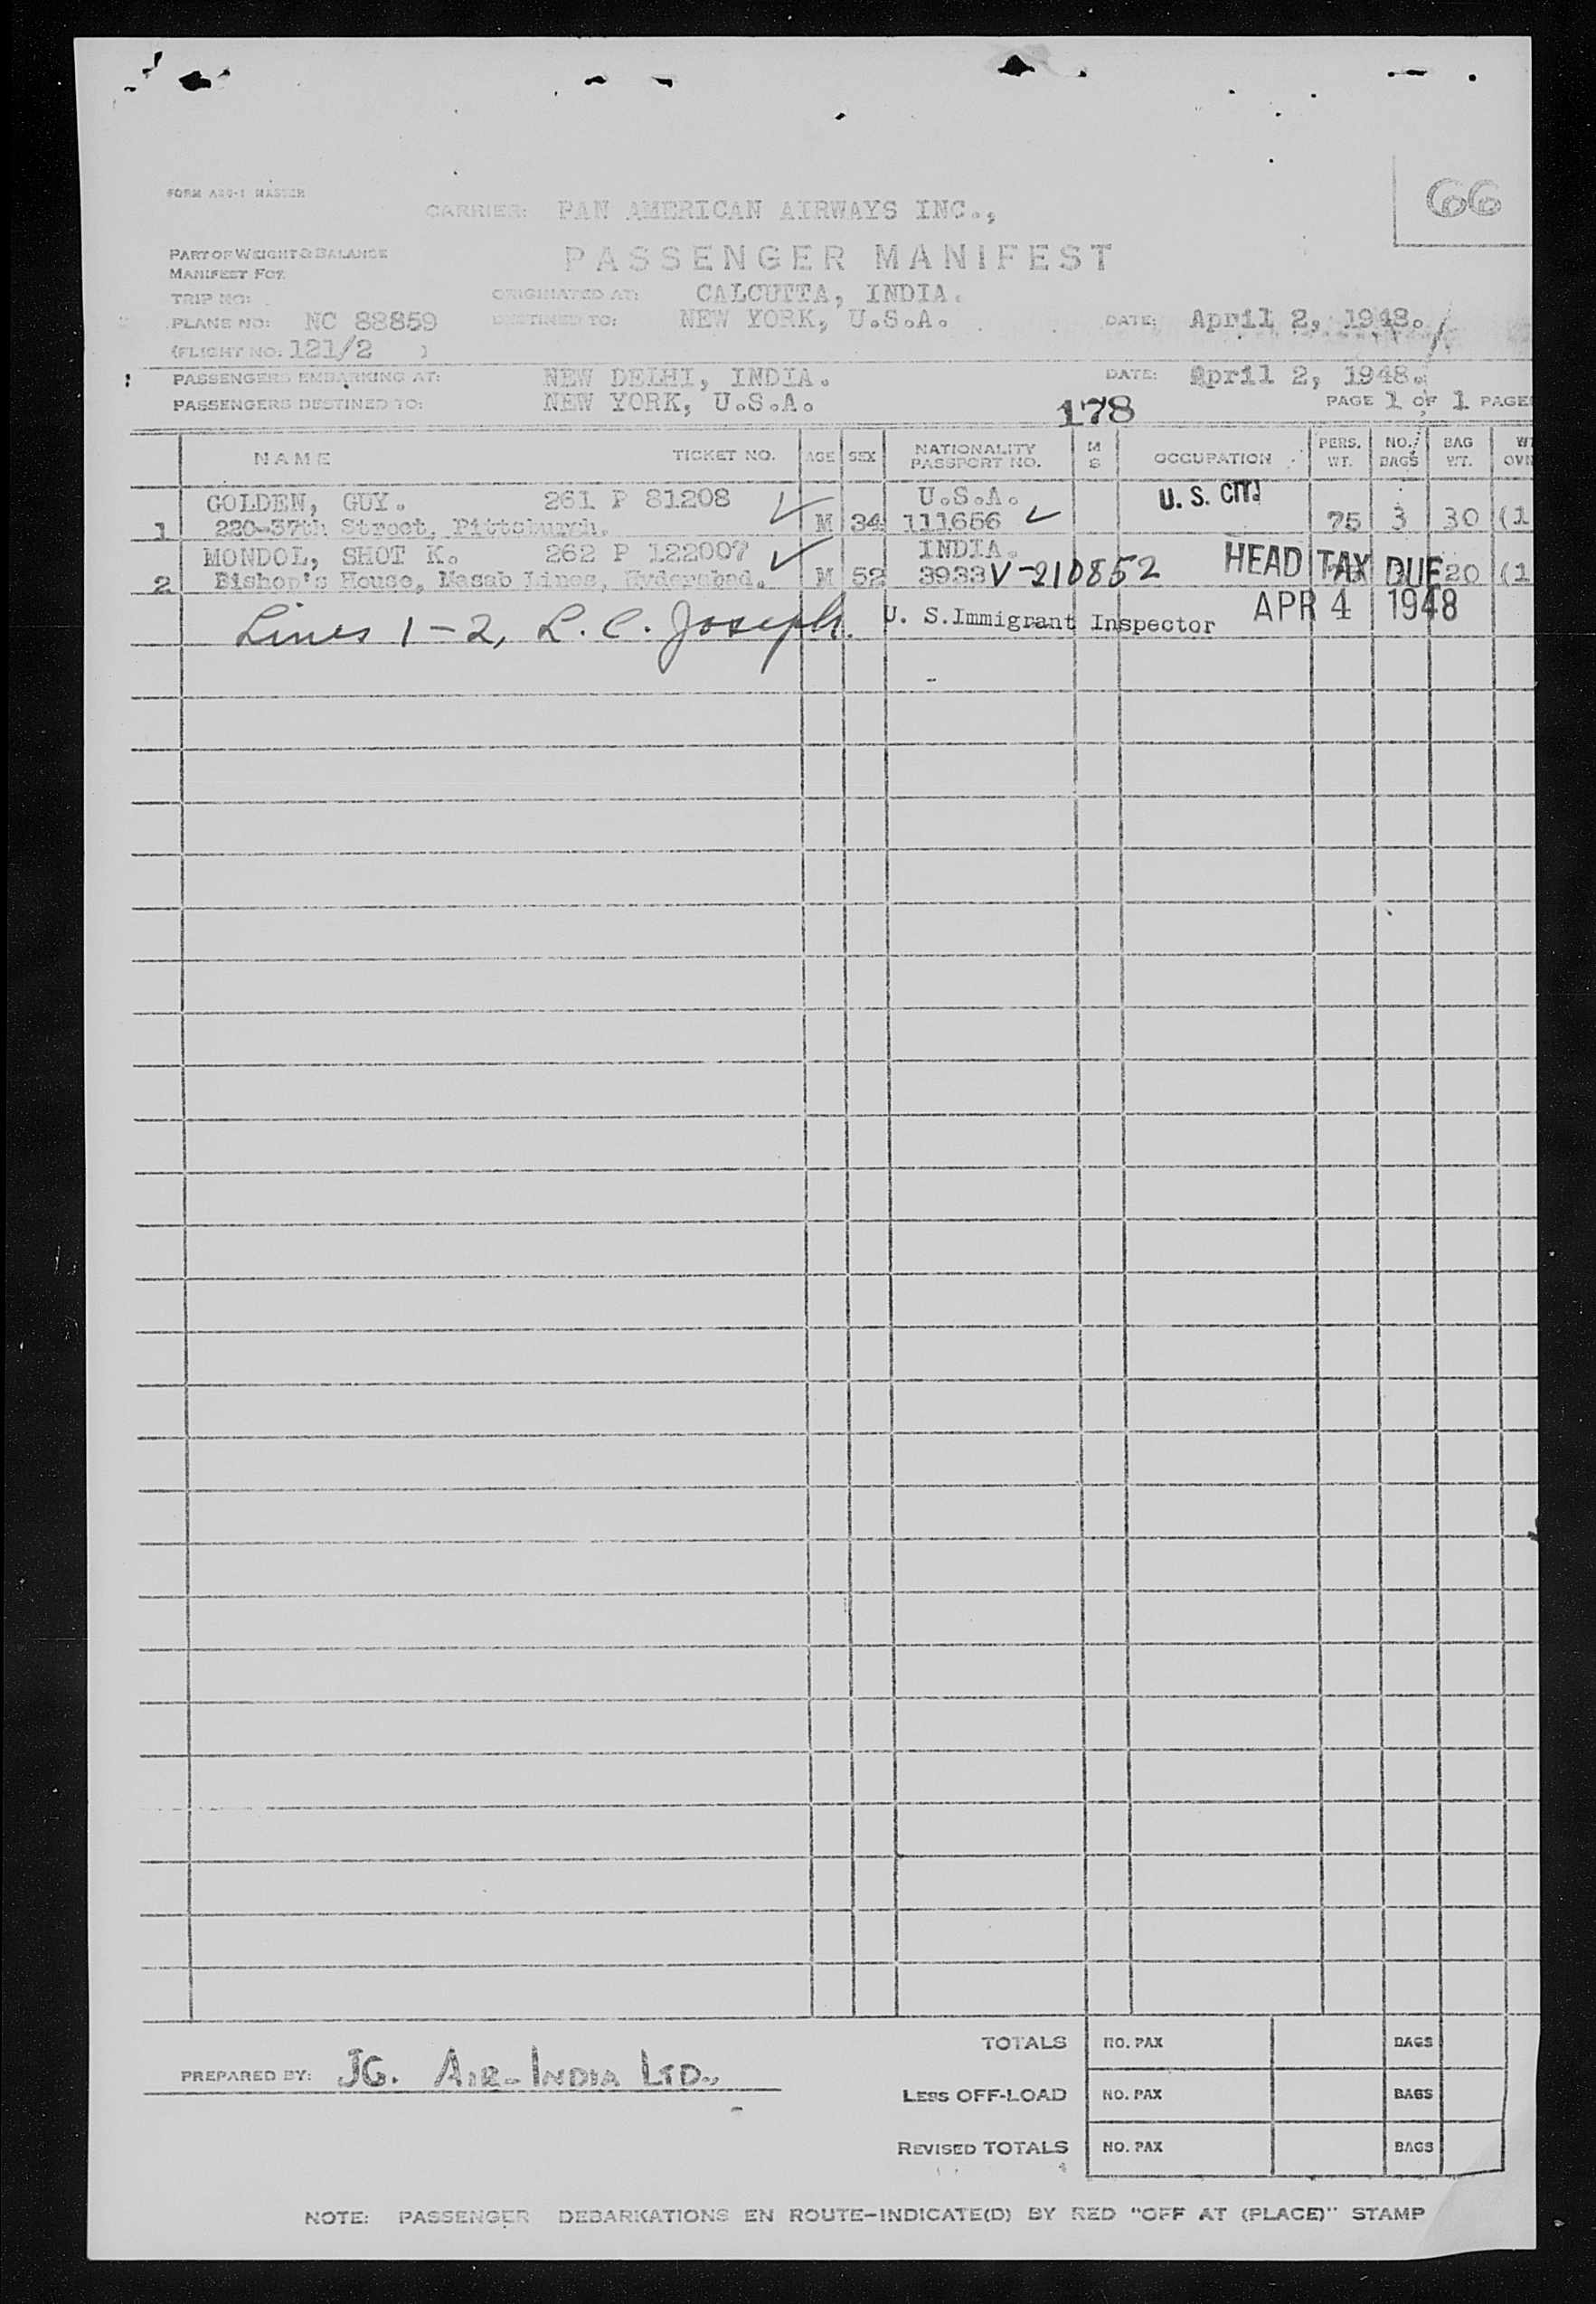 FORM ASG-1 MASTER
66
CARRIER: PAN AMERICAN AIRWAYS INC.,
PART OF WEIGHT & BALANCE
MANIFEST FOR
PASSENGER MANIFEST
TRIP NO:
ORIGINATED AT: CALCUTTA, INDIA.
PLANE NO: NC 88859 DESTINED TO: NEW YORK, U.S.A. DATE: April 2, 1948.
(FLIGHT NO. 121/2 )
PASSENGERS EMBARKING AT: NEW DELHI, INDIA. DATE: April 2, 1948.
PASSENGERS DESTINED TO: NEW YORK, U.S.A. PAGE 1 OF 1 PAGE
178
NAME TICKET NO. AGE SEX NATIONALITY PASSPORT NO. M S OCCUPATION PERS. WT. NO. BAGS BAG WT. WT OVN
GOLDEN, GUY. 261 P 81208 U.S.A. U. S. CIT.
1 220-37th Street, Pittsburgh. M 34 111656 75 3 30 (1
MONDOL, SHOT K. 262 P 122007 INDIA.
2 Bishop's House, Masab Lines, Hyderabad. M 52 3933 V-210852 HEAD TAX DUE 20 (1
Lines 1-2, L. C. Joseph. U. S. Immigrant Inspector APR 4 1948
TOTALS NO. PAX BAGS
PREPARED BY: JG. AIR-INDIA LTD.,
LESS OFF-LOAD NO. PAX BAGS
REVISED TOTALS NO. PAX BAGS
NOTE: PASSENGER DEBARKATIONS EN ROUTE-INDICATE(D) BY RED "OFF AT (PLACE)" STAMP